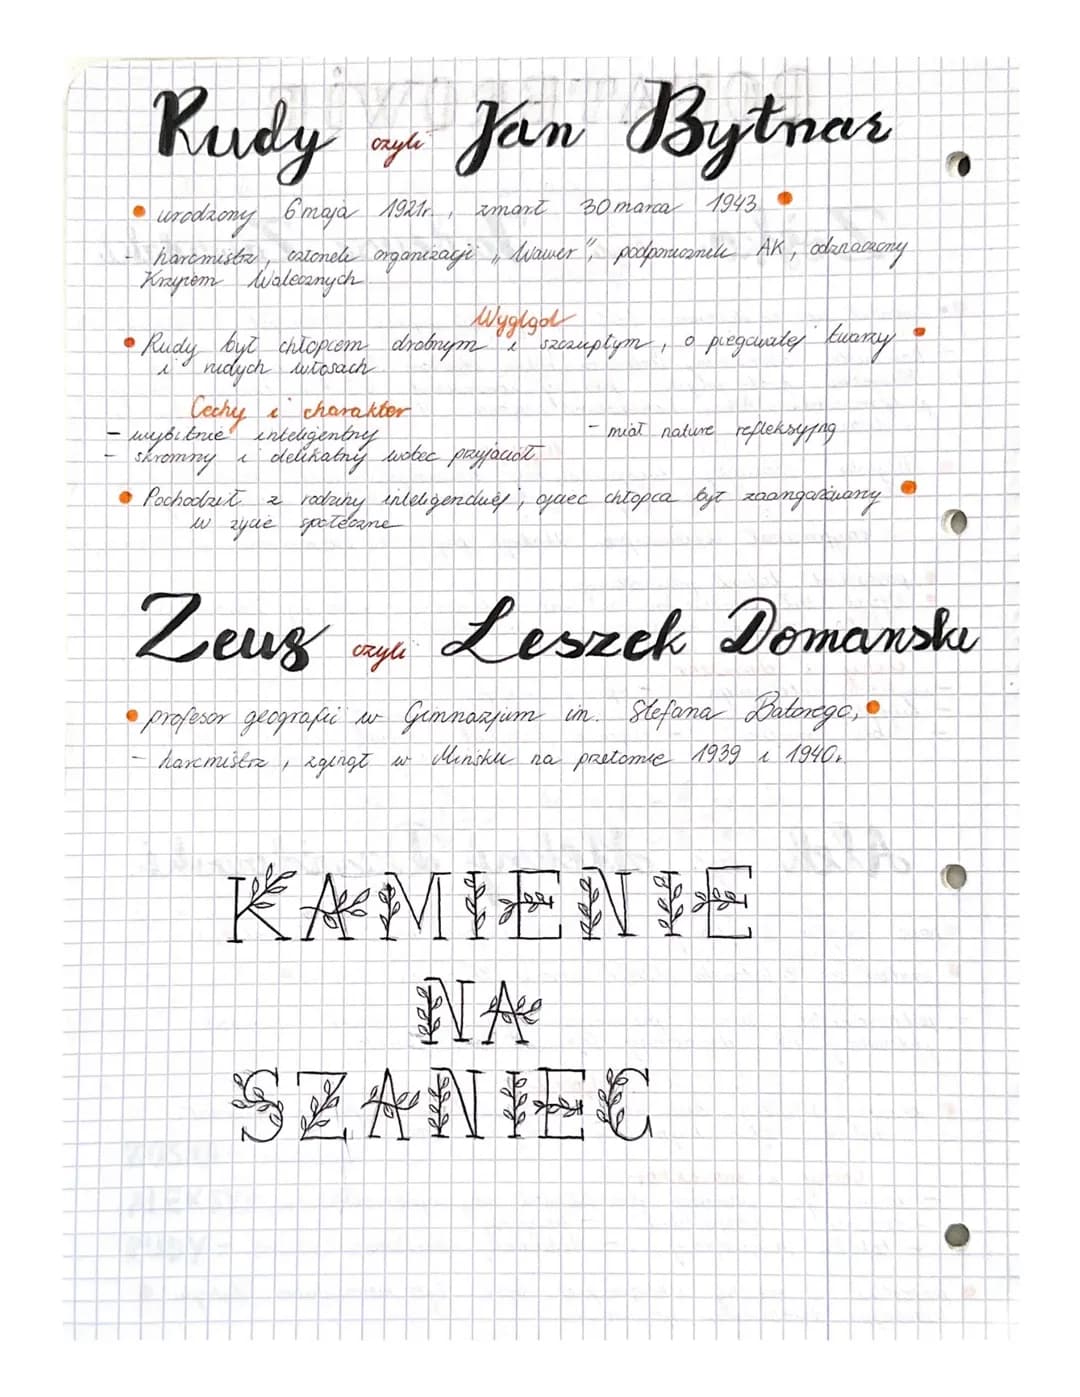 Rudy czyli Jan Bytnar
• urodzony 6 maja 1921r., zmarł 30 marca 1943 •
- harcmistrz, członek organizacji „Wawer", podporucznik AK, odznaczony
Krzyżem Walecznych
Wygląd
• Rudy był chłopcem drobnym i szczupłym, o piegowatej twarzy •
i rudych włosach
Cechy i charakter
- wybitnie inteligentny
- miał naturę refleksyjną
- skromny i delikatny wobec przyjaciół
• Pochodził z rodziny inteligenckiej, ojciec chłopca był zaangażowany •
w życie społeczne
Zeus czyli Leszek Domanski
• profesor geografii w Gimnazjum im. Stefana Batorego, •
- harcmistrz, zginął w Mińsku na przełomie 1939 i 1940r.
KAMIENIE
NA
SZANIEC